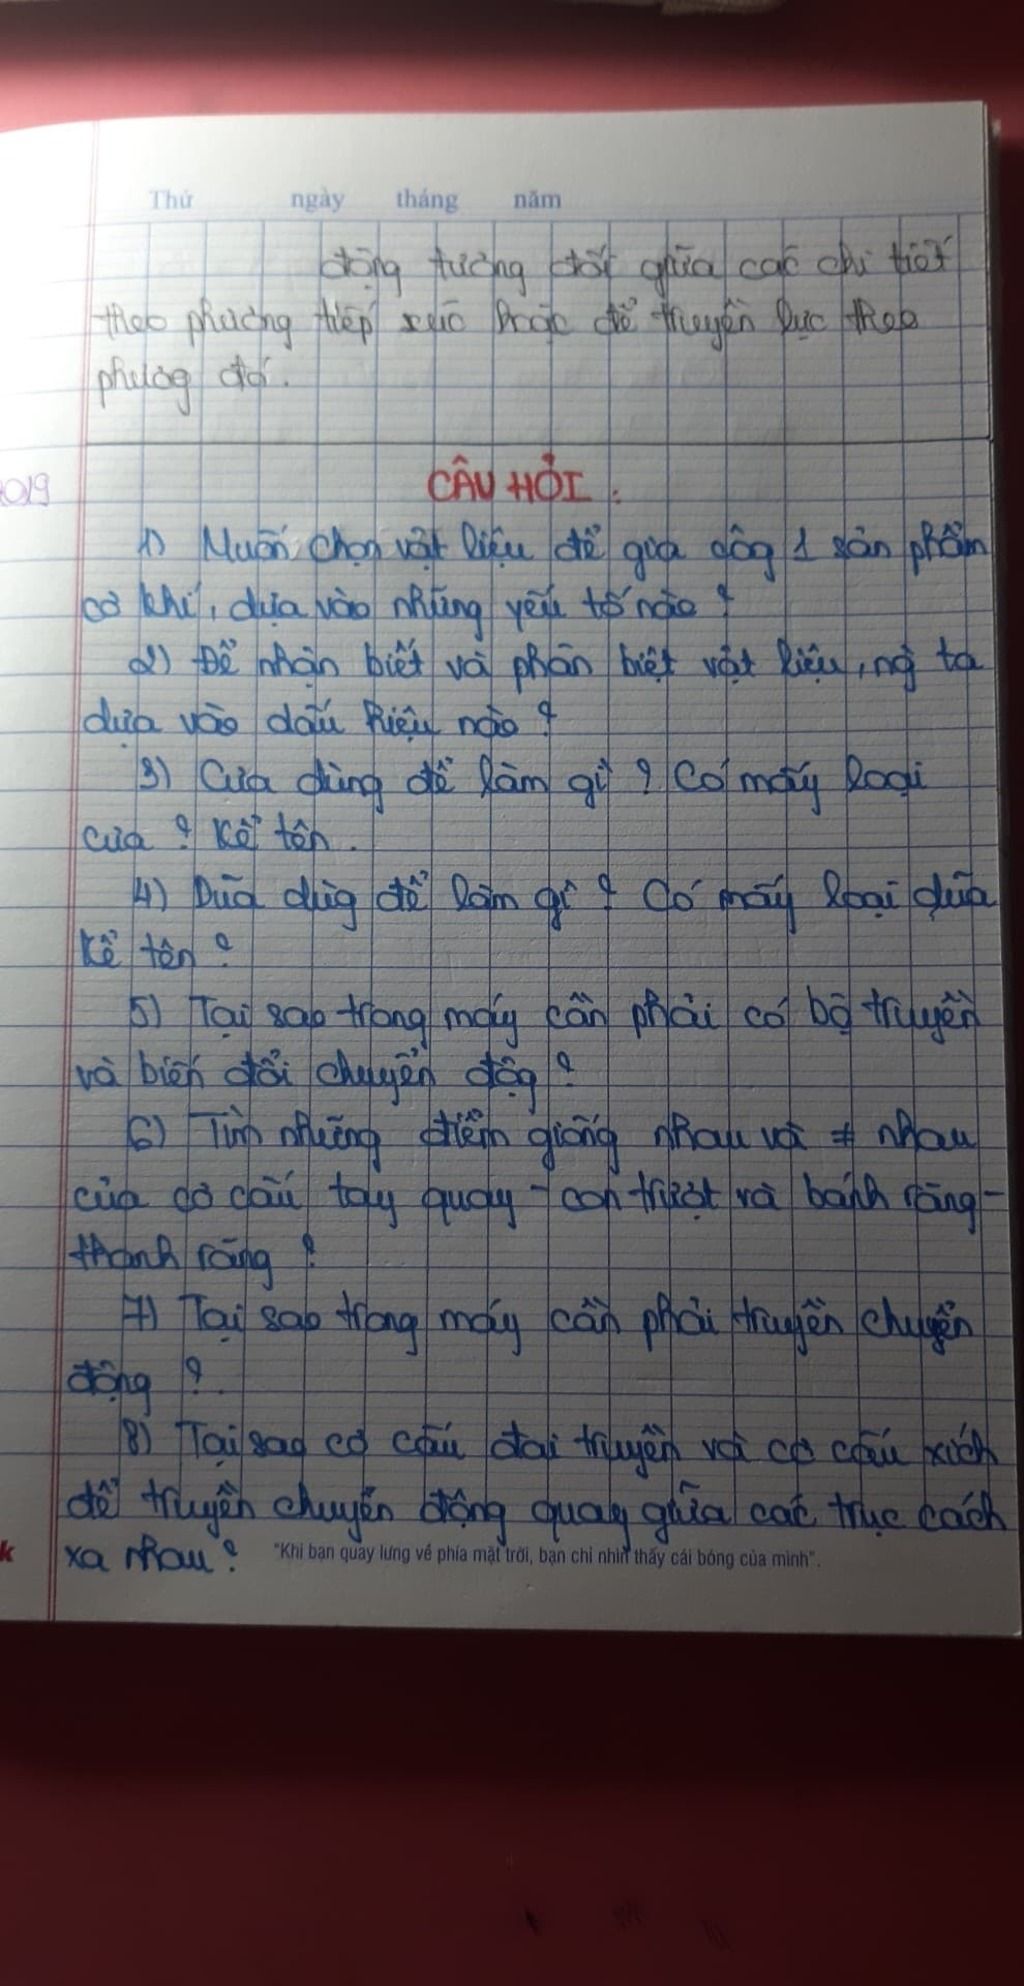 Thứ ngày tháng năm
động tương đối giữa các chi tiết
theo phương tiếp xúc hoặc để truyền lực theo
phương đó.
2019
CÂU HỎI :
1) Muốn chọn vật liệu để gia côg 1 sản phẩm
cơ khí, dựa vào những yếu tố nào ?
2) Để nhận biết và phân biệt vật liệu, ng ta
dựa vào dấu hiệu nào ?
3) Cưa dùng để làm gì ? Có mấy loại
cưa ? Kể tên.
4) Dũa dùg để làm gì ? Có mấy loại dũa
Kể tên ?
5) Tại sao trong máy cần phải có bộ truyền
và biến đổi chuyển độg ?
6) Tìm những điểm giống nhau và ≠ nhau
của cơ cấu tay quay - con trượt và bánh răng -
thanh răng ?
7) Tại sao trong máy cần phải truyền chuyển
động ?
8) Tại sao cơ cấu đai truyền và cơ cấu xích
để truyền chuyển động quay giữa các trục cách
xa nhau ?
"Khi bạn quay lưng về phía mặt trời, bạn chỉ nhìn thấy cái bóng của mình".
k